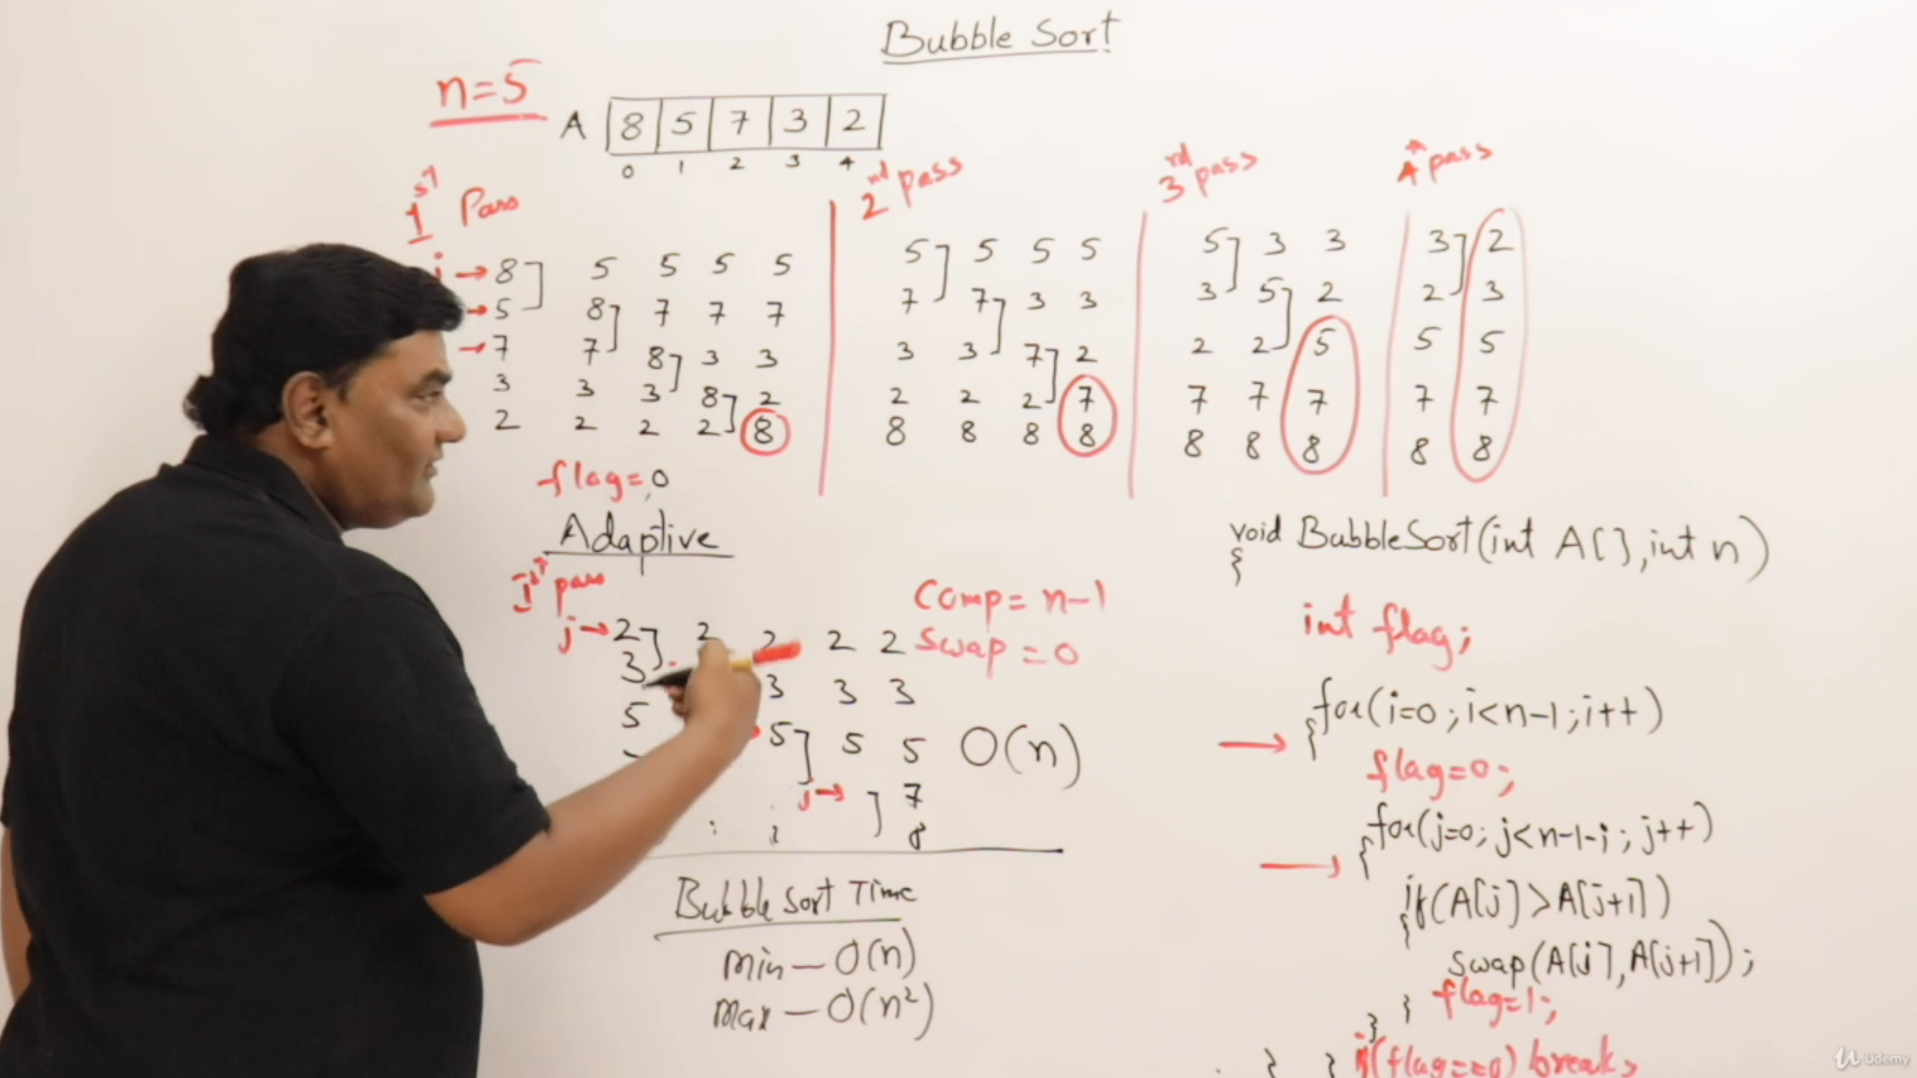 Bubble Sort
n=5
A 8 5 7 3 2
0 1 2 3 4
1st Pass
2nd pass
3rd pass
4th pass
→ 8 5 5 5 5
→ 5 8 7 7 7
→ 7 7 8 3 3
3 3 3 8 2
2 2 2 2 8
5 5 5 5
7 7 3 3
3 3 7 2
2 2 2 7
8 8 8 8
5 3 3
3 5 2
2 2 5
7 7 7
8 8 8
3 2
2 3
5 5
7 7
8 8
flag=0
Adaptive
1st pass
j→ 2 2 2 2 2
3 3 3 3
5 5 5 5
j→ 7
8
Comp = n-1
Swap = 0
O(n)
Bubble Sort Time
Min — O(n)
Max — O(n²)
void BubbleSort(int A[], int n)
{
int flag;
for(i=0; i<n-1; i++)
{
flag=0;
for(j=0; j<n-1-i; j++)
{
if(A[j]>A[j+1])
{
swap(A[j],A[j+1]);
flag=1;
}
}
if(flag==0) break;
}
}
Udemy